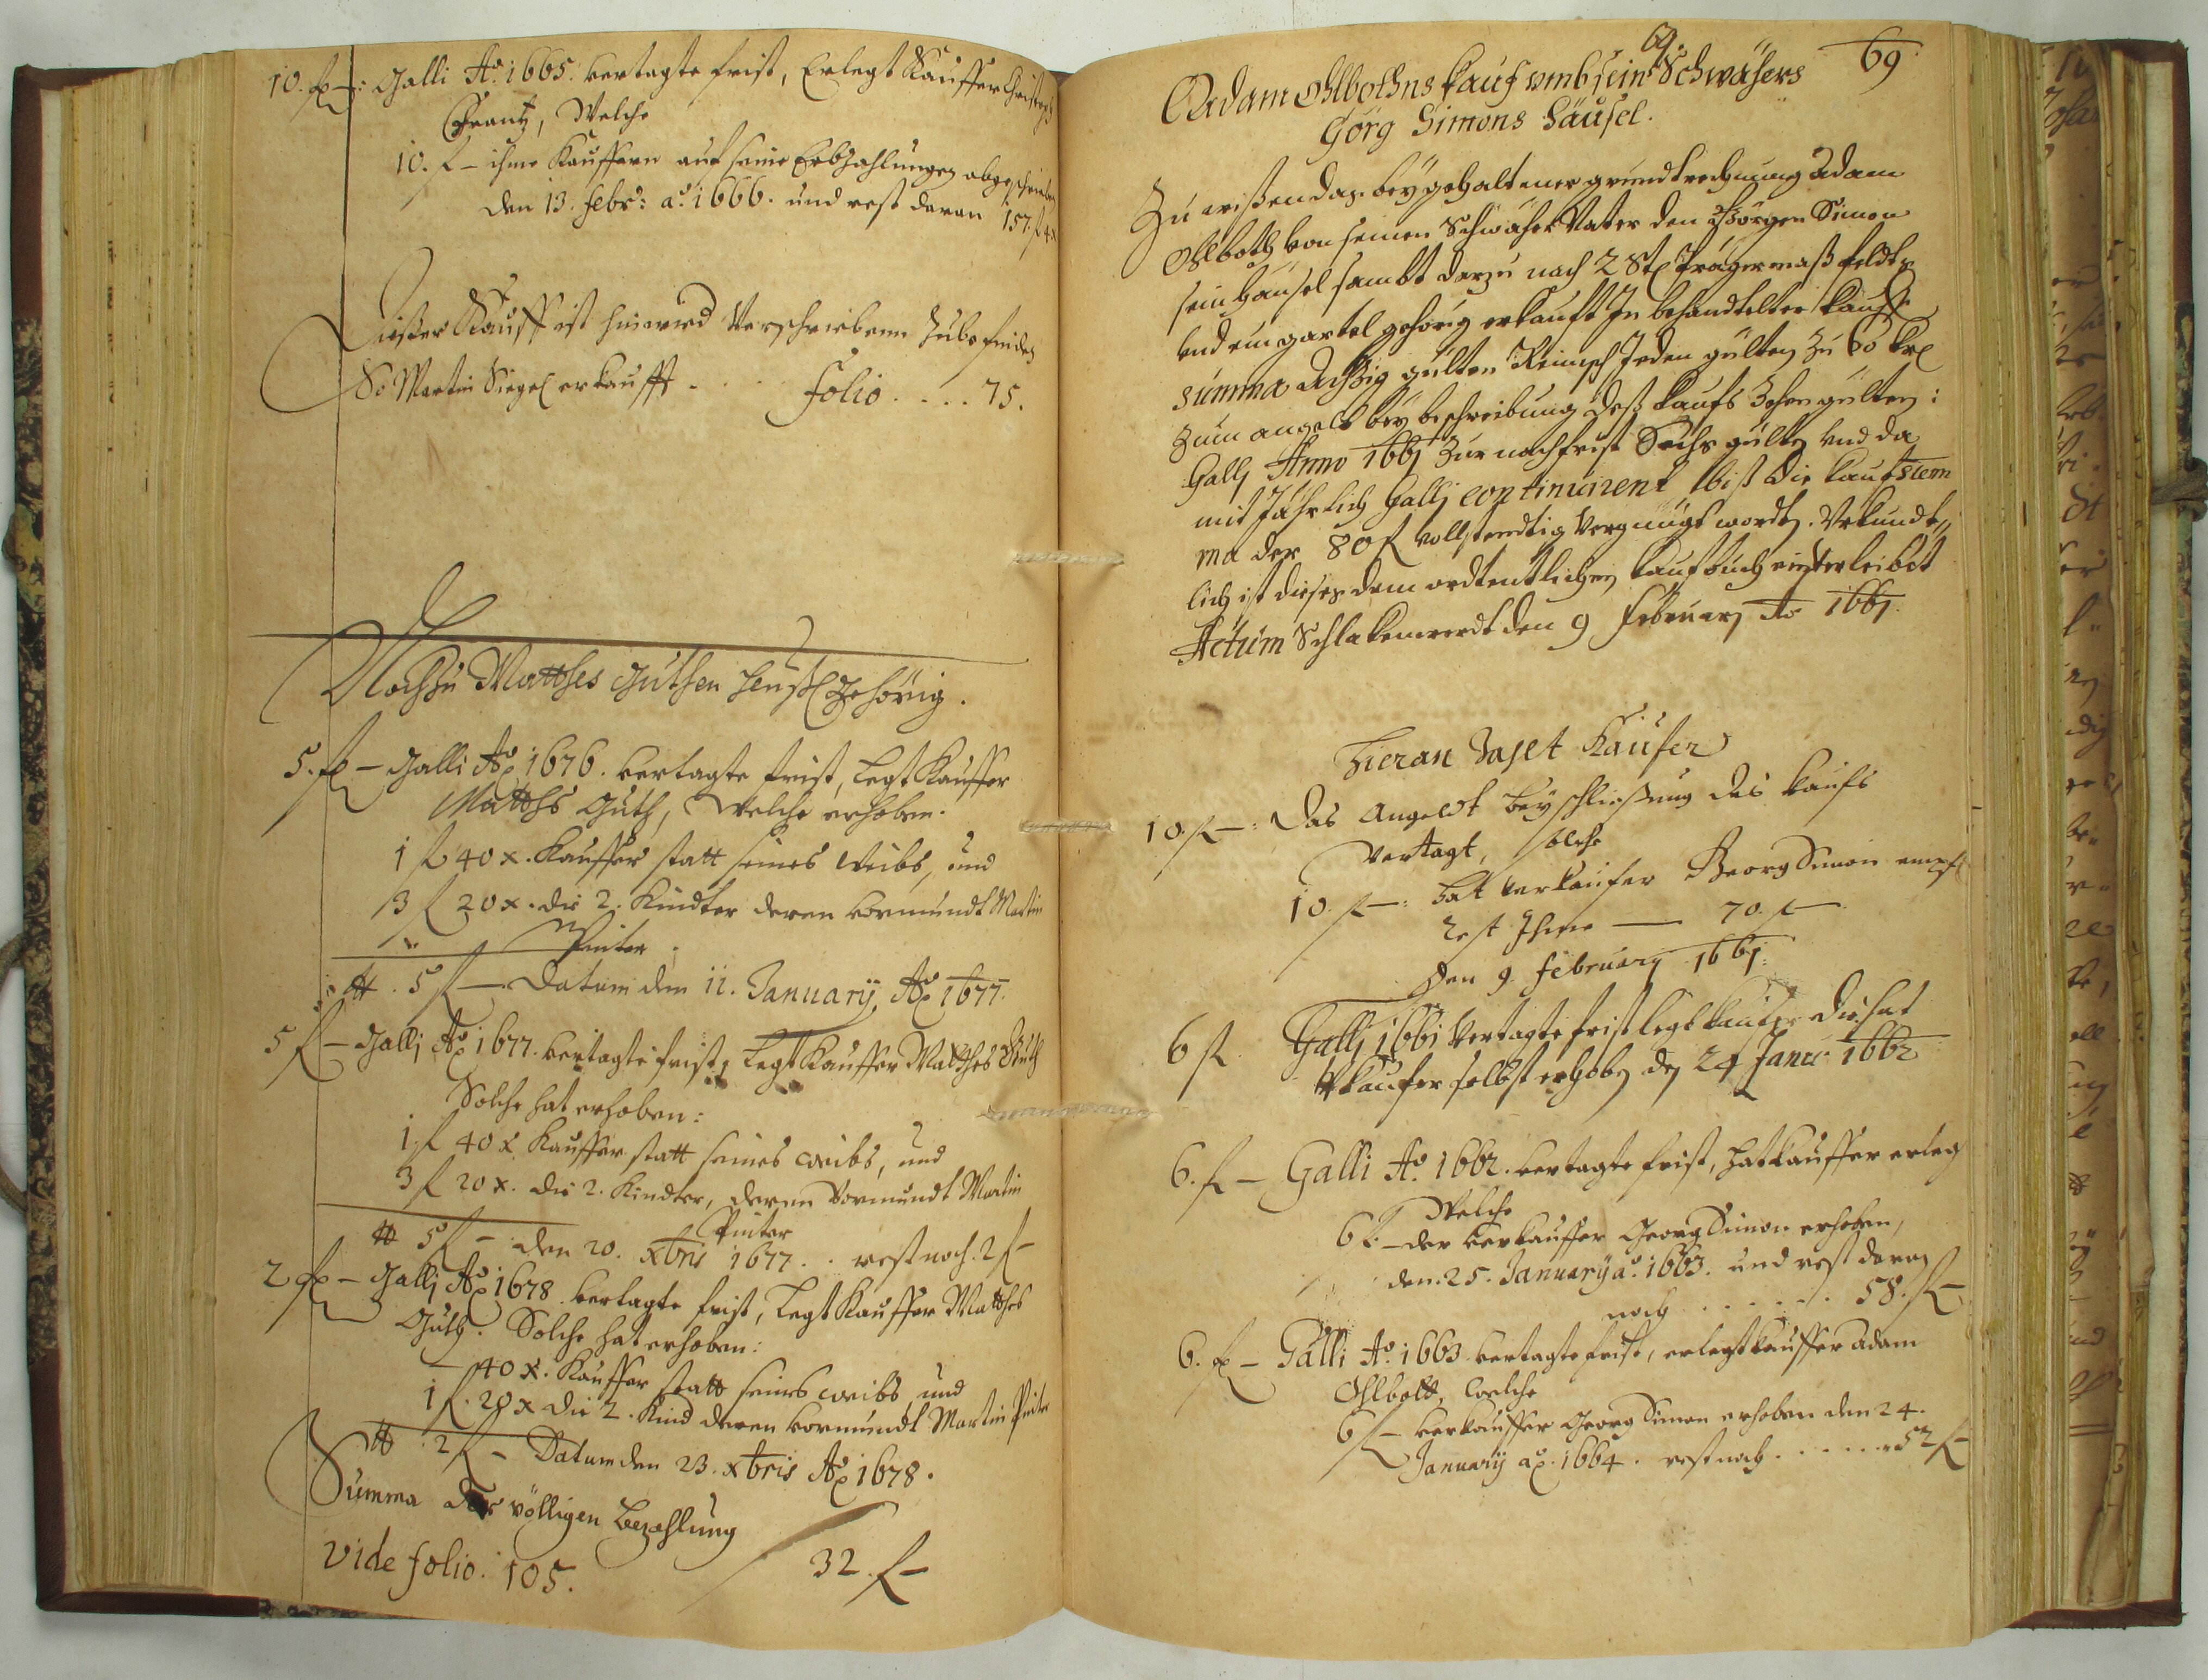 10. fl –: Galli Aō. 1665. vertagte frist, Erlegt Kauffer Christoph
Frantz, Welche
10. fl – ihme Kauffern auf seine Erbzahlungen abgeschrieben
den 13. febr: aō. 1666. und rest daran 157. fl 4 x
Dießer Kauff ist hinwied Verschriebenn Zubefinden
So Martin Siegel erkaufft . . . . folio . . . . 75.
Noch zu Mattheß Guthen heußl gehörig.
5. fl – Galli Aō 1676. vertagte frist, Legt Kauffer
Matths Guth, Welche erhoben.
1 fl 40 x. Kauffer statt seines Weibs, und
3 fl 20 x. die 2. Kindter deren vormundt Martin
Pinter.
tt. 5 fl – Datum den 11. Januarij Aō 1677.
5 fl – Gallj Aō 1677. vertagte frist, Legt Kauffer Matthes Guth
Solche hat erhoben:
1. fl 40 x Kauffer statt seines weibs, und
3 fl 20 x. die 2. Kindter, deren Vormundt Martin
Pinter
tt 5 fl – den 20. xbris 1677. . rest noch. 2 fl –
2 fl – Gallj Aō 1678 vertagte frist, Legt Kauffer Matthes
Guth. Solche hat erhoben:
– 40 x. Kauffer statt seines weibs, und
1 fl. 20 x die 2. Kind deren vormundt Martin Pinter
tt 2 fl – Datum den 23. xbris Aō 1678.
Summa der völligen Bezahlung
32. fl –
vide folio. 105.
69.
69
Adam Ohlbothns kauf umb sein Schwähers
Görg Simons Häusel.
Zu wißen das bey gehaltener grundtrechnung Adam
Ohlboth von seinen Schwäher Vater den Görgen Simon
sein hausel sambt darzu nach 2 Stl Prager maß feldtes
und ein gartel gehörig erkauft In behandtelter kauff
summa Achtzig gulten Reinisch Jeden gulten zu 60 krl
zum angelt bey beschreibung deß kaufs Zehen gulten:
Gallj Anno 1661 zur nachfrist Sechs gulten und da
mit Jährlich Gallj continuirent biß die kaufsum
ma der 80 fl vollstendig Vergnügt worden. Uhrkundt
lich ist dieses dem ordtentlichen kaufbuch einverleibet
Actum Schlakenwerdt den 9 February Ao 1661.
Hieran Zahlt Kaufer
10. fl –: Das Angeldt bey schließung des kaufs
vertagt, solche
10. fl –: hat verkaufer Georg Simon empf
Rest Ihme – 70. fl –
Den 9. February 1661.
6 fl Gallj 1661 Vertagte frist legt kaufer die hat
Vkaufer selbst erhoben den 24 Janro 1662
6. fl – Galli Aō. 1662. vertagte frist, hat kauffer erleg
Welche
6 fl. – der verkauffer Georg Simon erhoben,
den. 25. January aō. 1663. und rest daran
noch . . . . . . . 58. fl –
6. fl – Galli Aō. 1663 vertagte frist, erlegt kauffer Adam
Ohlbolt, welche
6 fl – verkauffer Georg Simon erhoben den 24.
Januarij aō. 1664. rest noch . . . . . . 52 fl –